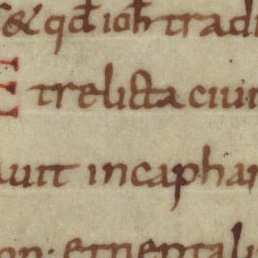 & qđ ioh̄ tradi
E trelicta ciui
auit incaphar
on· etneptali